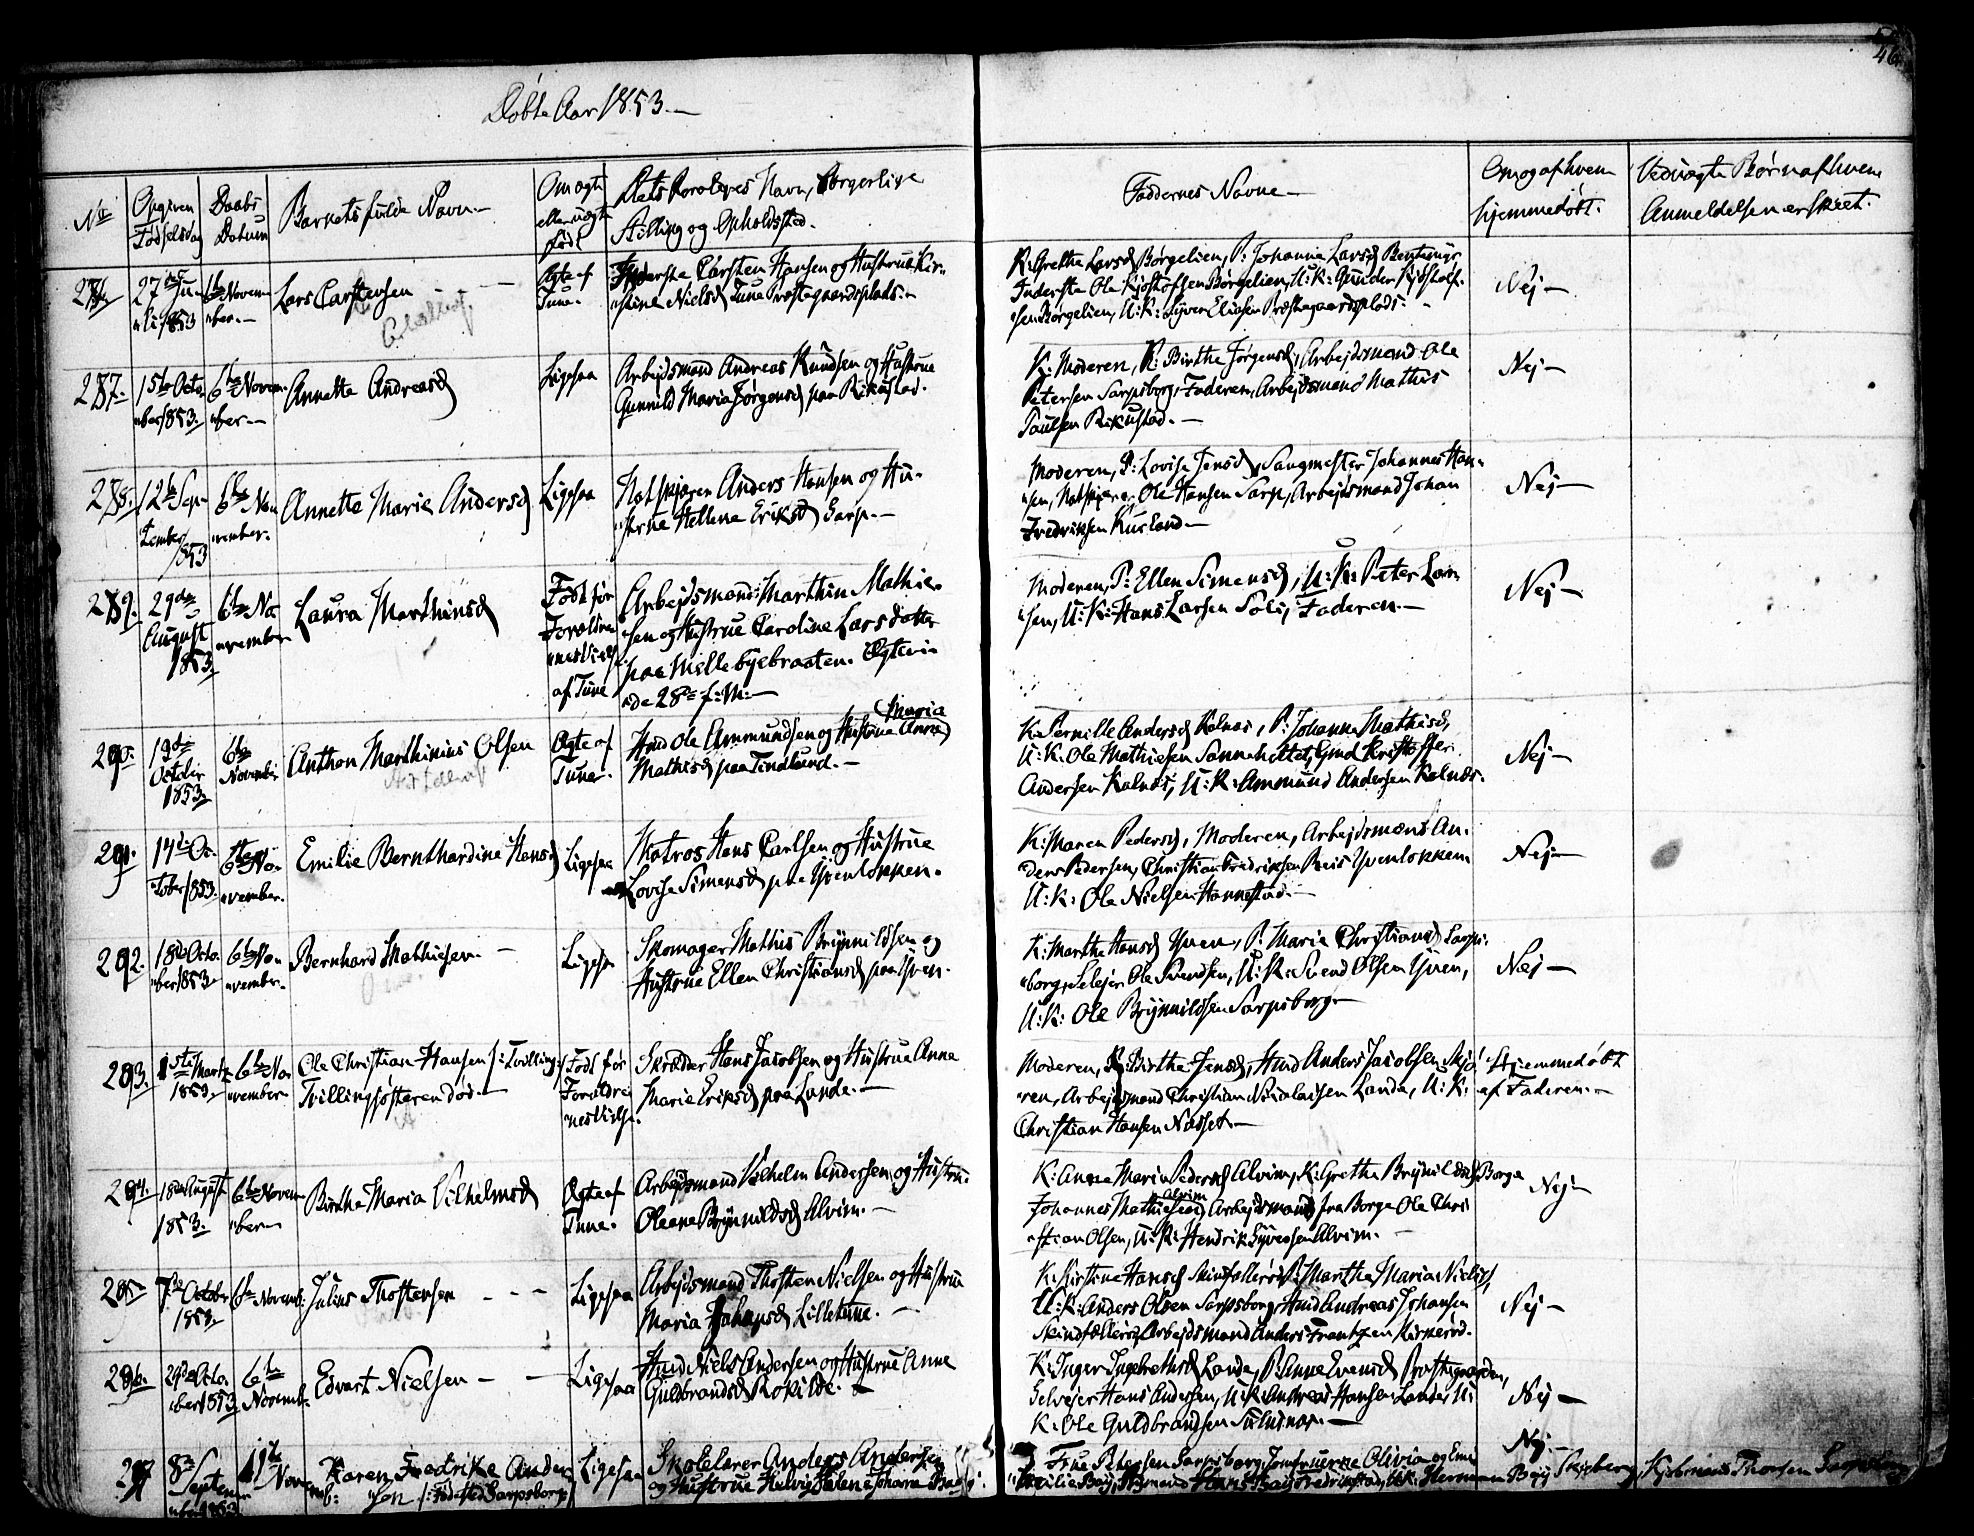 46
Døbte Aar 1853.—
No
Opgiven Fødselsdag
Daabs Datum
Barnets fulde Navn.—
Om ægte eller uægte født
Dets Forældres Navn, borgerlige Stilling og Opholdssted.
Faddernes Navne—
Om og af hvem hjemmedøbt.
Ved uægte Børn af hvem Anmeldelsen er skeet.
286. 27de Juli 1853 6te November.— Lars Carstensen
Ægte af Tune.
Carsten Hansen og Hustrue Kirstine Nielsd Tune Præstegaardsplads.—
K: Grethe Larsd Børgelien, P: Johanne Larsd
Inderste Ole Kjøstolfsen Børgelien, U: K: Gunder Kjøstolf-
sen Børgelien, U: K: Syver Eliasen Præstegaardsplads.
Nej—
287. 15de October 1853. 6te November— Annette Andreasd
Ligesaa
Arbejdsmand Andreas Knudsen og Hustrue
Gunnild Maria Jørgensd paa Rikustad.
K: Moderen, P: Birthe Jørgensd, Arbejdsmand Ole
Petersen Sarpsborg, Faderen, Arbejdsmand Mathis
Paulsen Rikustad.—
Nej—
288. 12te September 1853 6te November. Annette Marie Andersd
Ligesaa
Anders Hansen og Hu-
strue Hellene Eriksd Sarp.—
Moderen, P: Lovise Jensd, Saugmester Johannes Han-
sen, Ole Hansen Sarp, Arbejdsmand Johan
Fredriksen Kusland—
Nej—
289. 29de August 1853. 6te November Laura Marthinsd
Født før Forældrenes Vielse af Tune
Arbejdsmand Marthin Mathie-
sen og Hustrue Caroline Larsdatter
paa Mellebyebraaten. Ægtevi-
ede 28de f: M:—
Moderen, P: Ellen Simensd, U: K: Peter Lar-
sen, U: K: Hans Larsen Soli, Faderen.—
Nej—
290. 13de October 1853. 6te November Anthon Marthinius Olsen
Ægte af Tune.
Hmd Ole Ammundsen og Hustrue Anne Maria
Mathisd paa Tindlund.—
K: Pernille Andersd Kalnæs, P: Johanne Mathisd,
U: K: Ole Mathiesen Sannehettet, Gmd Kristoffer
Andersen Kalnæs, U: K: Ammund Andersen Kalnæs.
Nej—
291. 14de October 1853. 6te November. Emilie Bernthardine Hansd
Ligesaa
Matros Hans Carlsen og Hustrue
Lovise Simensd paa Yvenløkken.
K: Maren Pedersd, Moderen, Arbejdsmand An-
ders Pedersen, Christian Fredriksen Reis Yvenløkken
U: K: Ole Nielsen Hannestad.—
Nej—
292. 18de October 1853 6te November. Bernhard Mathiesen.—
Ligesaa
Skomager Mathis Brynnildsen og
Hustrue Ellen Christiansd paa Yven.
K: Marthe Hansd Yven, P: Maria Christiansd Sarps-
borg, Selvejer Ole Svendsen, U: K: Svend Olsen Yven,
U: K: Ole Brynnildsen Sarpsborg.—
Nej—
293. 1ste Marts 1853. 6te November Ole Christian Hansen /: Tvilling:/
Tvillingsøsteren død.—
Født før Forældrenes Vielse.
Skrædder Hans Jacobsen og Hustrue Anne
Marie Eriksd paa Lande.—
Moderen, P: Birthe Jensd, Hmd Anders Jacobsen
Arbejdsmand Christian Nicolaisen Lande, U: K:
Christian Hansen Næsset—
Hjemmedøbt af Faderen.—
294. 18de August 1853. 6te November— Birthe Maria Vilhelmsd
Ægte af Tune.
Arbejdsmand Vilhelm Andersen og Hustrue
Oleane Brynnildsd Alvim.—
K: Anne Maria Pedersd Alvim, K: Grethe Brynnildsd Borge
Johannes Mathiesen Alvim, Arbejdsmand fra Borge Ole Chri-
stian Olsen, U: K: Hendrik Syversen Alvim.—
Nej—
295. 7de October 1853. 6te Novemb: Julius Thostensen - - -
Ligesaa
Arbejdsmand Thosten Nielsen og Hustrue
Maria Johansd Lilletune.—
K: Kirstine Hansd P: Marthe Maria Nielsd,
U: K: Anders Olsen Sarpsborg, Hmd Andreas Johansen
Arbejdsmand Anders Frantzen Kirkerød.
Nej—
296. 29de October 1853. 6te Novemb: Edvart Nielsen - -
Ligesaa
Hmd Niels Andersen og Hustrue Anne
Guldbrandsd Rokilde.—
K: Inger Ingebrethsd Lande, P: Anne Evensd Præstegaarden,
Selvejer Hans Andersen, U: K: Andreas Hansen Lande, U:
K: Ole Guldbrandsen—
Nej—
297 8de September 1853 11te Novemb: Karen Fredrikke Andersen /: Født Sted Sarpsborg
Ligesaa
Skolelærer Anders Andersen
og Hustrue Helvig Helene Johanne
Frue Petersen Sarpsborg, Jomfruerne Olivia og Emi-
Nej—
Herman Sarpsborg, Thorsen Sarpsborg